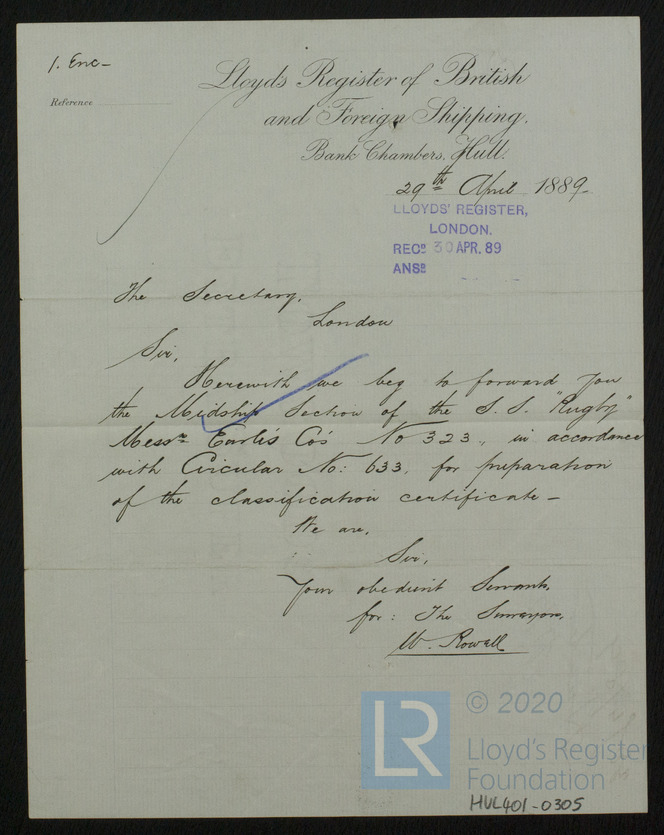 1. Enc-
Reference
Lloyds Register of British
and Foreign Shipping.
Bank Chambers, Hull.
29th April 1889-
LLOYDS' REGISTER,
LONDON.
RECD 30 APR. 89
ANSD
The Secretary,
London
Sir,
Herewith we beg to forward you
the Midship Section of the S.S. "Rugby"
Messrs Earle's Co's No 323, in accordance
with Circular No: 633, for preparation
of the classification certificate -
We are,
Sir,
Your obedient Servants,
for: The Surveyors,
W. Rowall
LR
© 2020
Lloyd's Register
Foundation
HUL401-0305